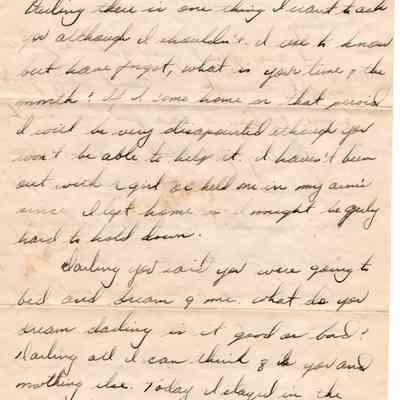 Darling there is one thing I want to ask
you although I shouldn't. I use to know
but have forgot, what is your time of the
month? If I come home on that period
I will be very disapointed although you
won't be able to help it. I haven't been
out with a girl or held one in my arms
since I left home so I might be
hard to hold down.
Darling you said you were going to
bed and dream of me. What do you
dream darling is it good or bad?
Darling all I can think of is you and
nothing else. Today I stayed in the